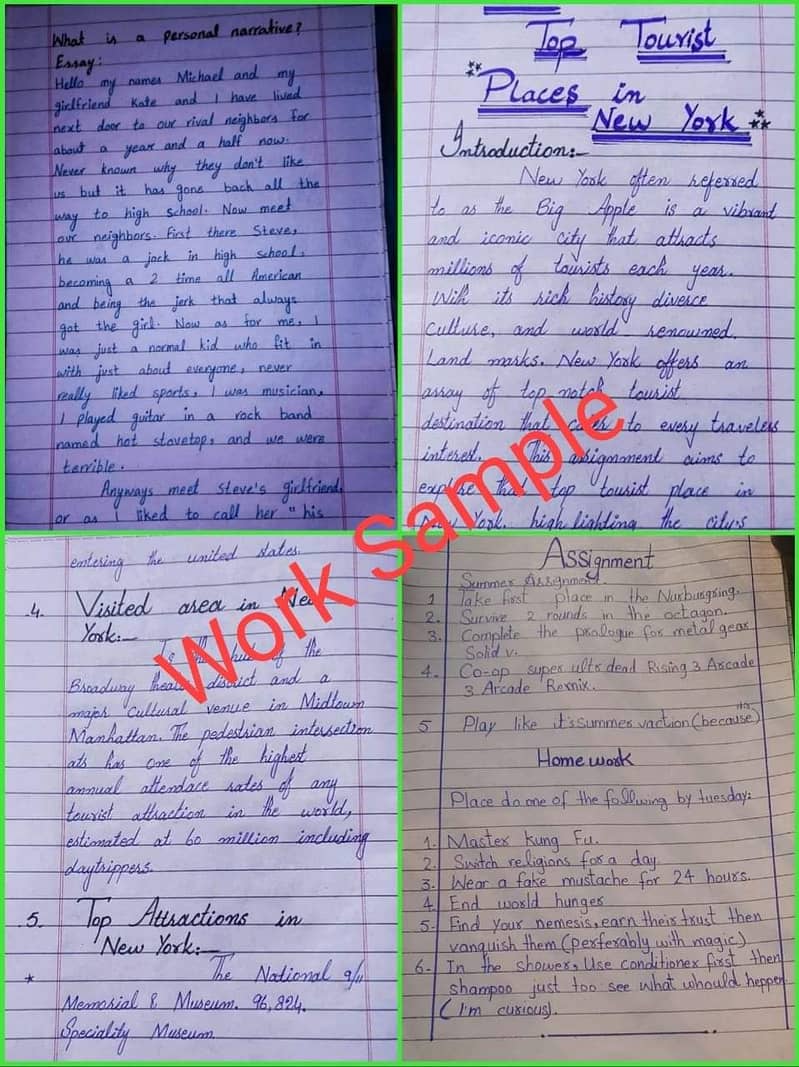 What is a personal narrative?
Essay:
Hello my names Michael and my
girlfriend Kate and I have lived
next door to our rival neighbors for
about a year and a half now.
Never known why they don't like
us but it has gone back all the
way to high school. Now meet
our neighbors. First there Steve,
he was a jock in high school,
becoming a 2 time all American
and being the jerk that always
got the girl. Now as for me, I
was just a normal kid who fit in
with just about everyone, never
really liked sports, I was musician,
I played guitar in a rock band
named hot stovetop, and we were
terrible.
Anyways meet Steve's girlfriend,
or as I liked to call her "his
Top Tourist
Places in
New York
Introduction:-
New York often referred
to as the Big Apple is a vibrant
and iconic city that attracts
millions of tourists each year.
With its rich history diverce
culture, and world renowned.
Land marks. New York offers an
array of top notch tourist
destination that to every travelers
interest. This assignment aims to
that top tourist place in
New York. high lighting the city's
entering the united states.
4. Visited area in New
York:-
the
Broadway district and a
major cultural venue in Midtown
Manhattan. The pedestrian intersection
ats has one of the highest
annual attendace rates of any
tourist attraction in the world,
estimated at 60 million including
daytrippers.
5. Top Attractions in
New York:-
* The National 9/11
Memorial & Museum. 96,824.
Speciality Museum.
Assignment
Summer Assignment.
1 Take first place in the Nurburgring.
2. Survive 2 rounds in the octagon.
3. Complete the prologue for metal gear
Solid v.
4. Co-op super ultr dead Rising 3 Arcade
3 Arcade Remix.
5 Play like it's summer vaction (because)
Home work
Place do one of the follwing by tuesday:
1. Master Kung Fu.
2. Switch religions for a day.
3. Wear a fake mustache for 24 hours.
4. End world hunger
5. Find your nemesis, earn their trust then
vanquish them (perferably with magic)
6. In the shower, Use conditioner first then
shampoo just too see what whould heppen
(I'm curious).
Work Sample